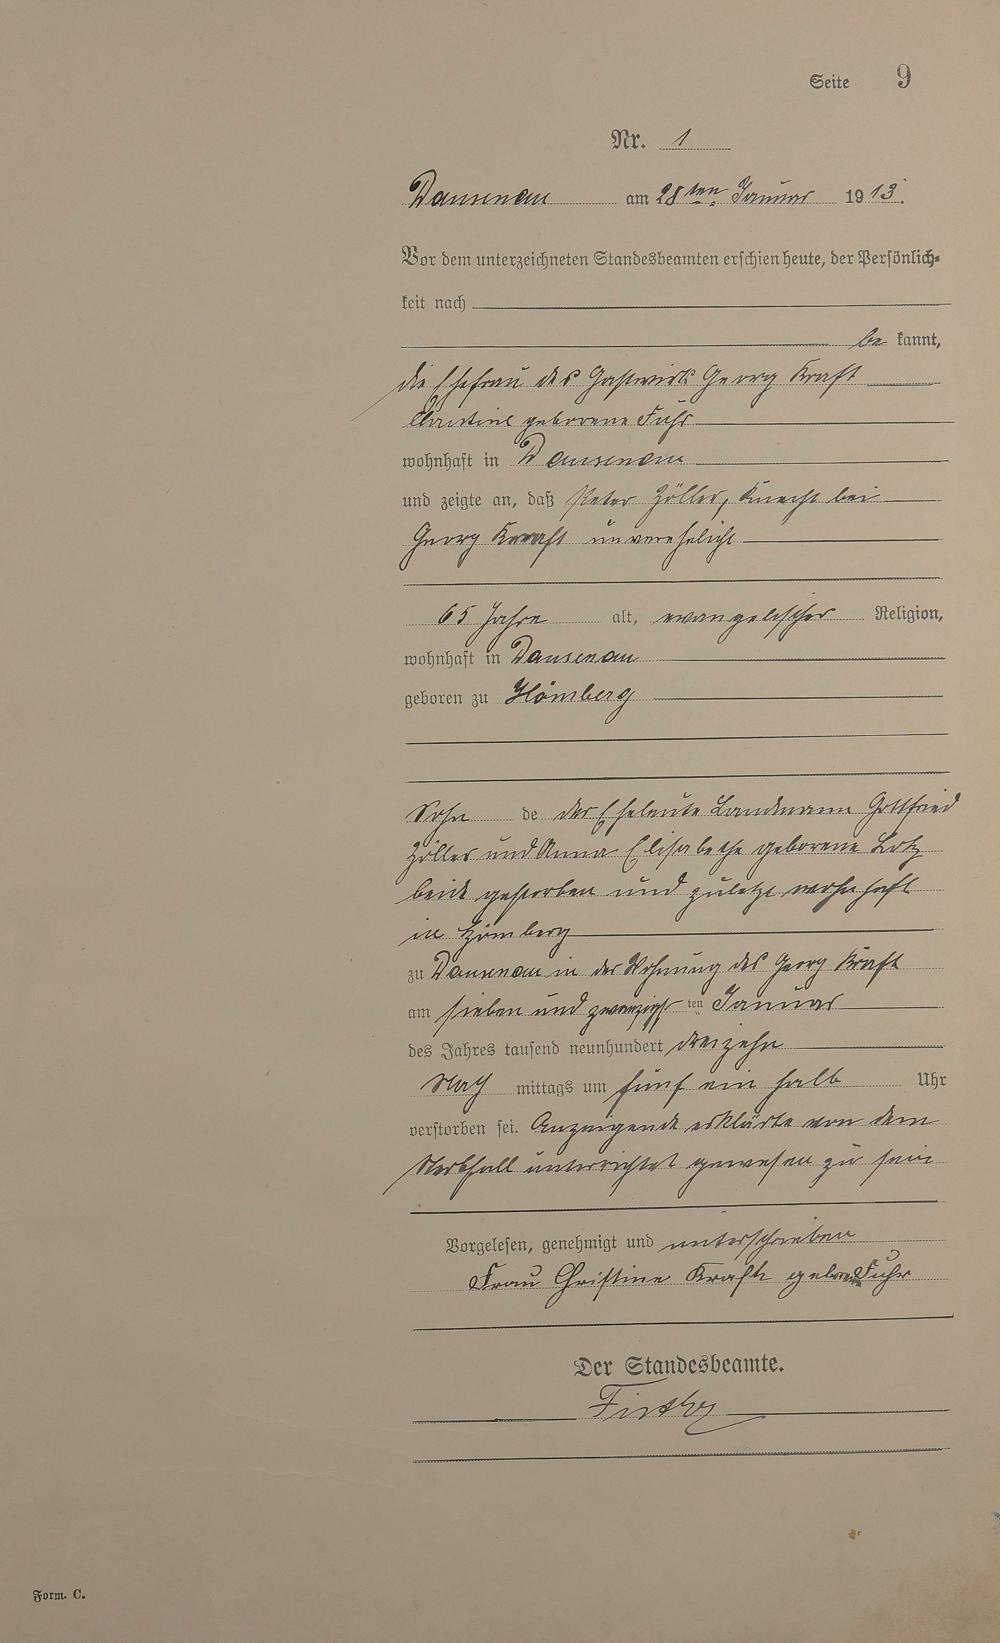 Seite 9
Nr. 1
Dausenau am 28ten Januar 1913.
Vor dem unterzeichneten Standesbeamten erschien heute, der Persönlich-
keit nach
be kannt,
die Ehefrau des Gastwirts Georg Kraft
geborene Fuhr
wohnhaft in Dausenau
und zeigte an, daß Peter Zöller, Knecht bei
Georg Kraft unverehelicht
65 Jahre alt, evangelischer Religion,
wohnhaft in Dausenau
geboren zu Hömberg
Sohn de der Eheleute Landmann Gottfried
Zöller und Anna Elisabethe geborene Lotz
beide gestorben und zuletzt wohnhaft
in Hömberg
zu Dausenau in der Wohnung des Georg Kraft
am sieben und zwanzigsten Januar
des Jahres tausend neunhundert dreizehn
Nach mittags um fünf ein halb Uhr
verstorben sei. Anzeigende erklärte von dem
Sterbfall unterrichtet gewesen zu sein
Vorgelesen, genehmigt und unterschrieben
Frau Christine Kraft geborene Fuhr
Der Standesbeamte.
Form. C.